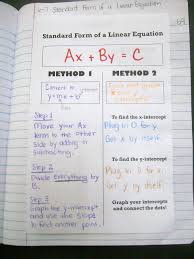 6-7 Standard Form of a Linear Equation
69
Standard Form of a Linear Equation
Ax + By = C
METHOD 1
METHOD 2
Convert to
y = mx + b
To find the x-intercept
Plug in 0 for y.
Get x by itself.
To find the y-intercept
Plug in 0 for x
Get y by itself.
Graph your intercepts and
connect the dots!
Step 1
Move your Ax
term to the other
side by adding or
subtracting.
Step 2
Divide everything by
B.
Step 3
Graph the y-intercept
and use the slope
to find another point.